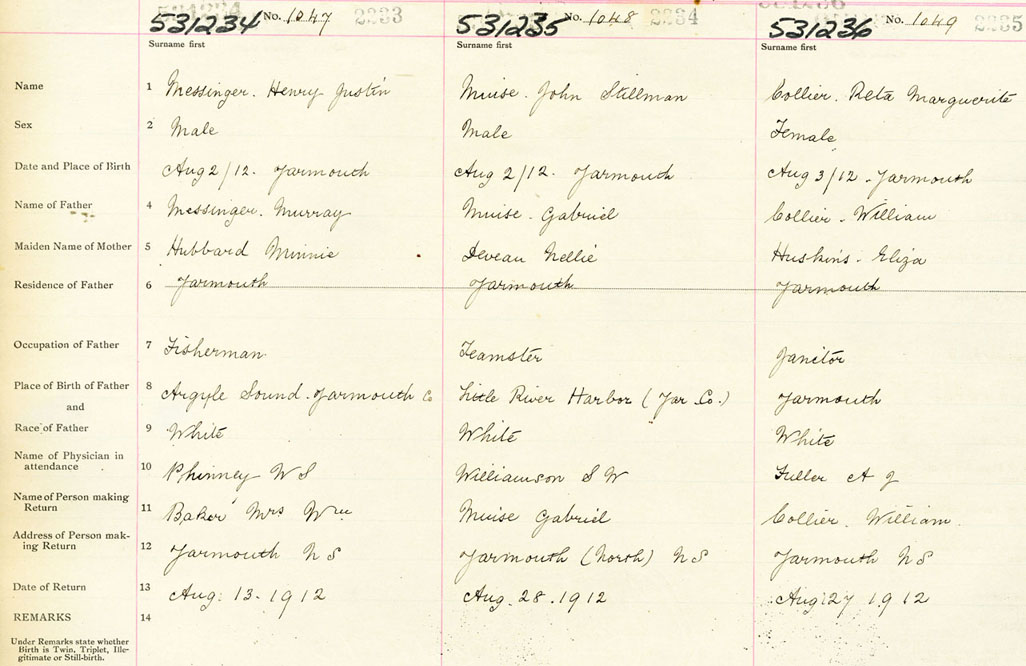 531234 No. 1047 2233 531235 No. 1048 2234 531236 No. 1049 2235
Surname first Surname first Surname first
Name 1 Messinger. Henry Justin Muise. John Stillman Collier. Reta Marguerite
Sex 2 Male Male Female
Date and Place of Birth Aug 2/12. Yarmouth Aug 2/12. Yarmouth Aug 3/12 - Yarmouth
Name of Father 4 Messinger. Murray Muise. Gabriel Collier - William
Maiden Name of Mother 5 Hubbard Minnie Deveau Nellie Huskins - Eliza
Residence of Father 6 Yarmouth Yarmouth Yarmouth
Occupation of Father 7 Fisherman Teamster Janitor
Place of Birth of Father 8 Argyle Sound. Yarmouth Co Little River Harbor (Yar. Co.) Yarmouth
and
Race of Father 9 White White White
Name of Physician in
attendance 10 Phinney W S Williamson S W Fuller A J
Name of Person making
Return 11 Baker Mrs Wm Muise Gabriel Collier. William.
Address of Person mak-
ing Return 12 Yarmouth N S Yarmouth (North) N S Yarmouth N S
Date of Return 13 Aug: 13 - 1912 Aug. 28. 1912 Aug 27 1912
REMARKS 14
Under Remarks state whether
Birth is Twin, Triplet, Ille-
gitimate or Still-birth.